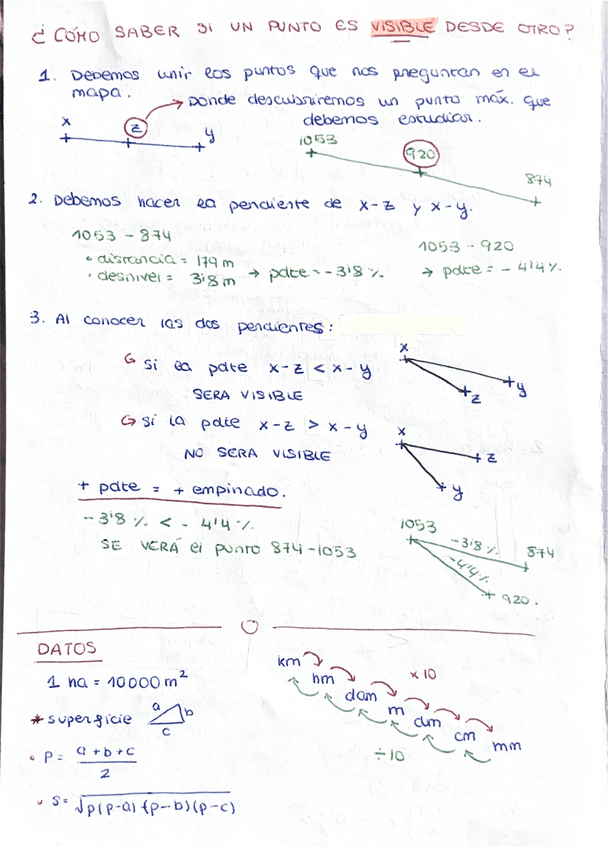 ¿ CÓMO SABER SI UN PUNTO ES VISIBLE DESDE OTRO?
1. Debemos unir los puntos que nos preguntan en el
mapa.
Donde descubriremos un punto máx. que
debemos estudiar.
x z y
1053 920 874
2. Debemos hacer la pendiente de x-z y x-y.
1053 - 874
• distancia = 179 m
• desnivel = 3'8 m → pdte = -3'8 %
1053 - 920
→ pdte = - 4'4 %
3. Al conocer las dos pendientes:
si la pdte x-z < x-y
SERA VISIBLE
x y z
si la pdte x-z > x-y
NO SERA VISIBLE
x z y
+ pdte = + empinado.
-3'8 % < - 4'4 %
SE VERÁ el punto 874-1053
1053 -3'8 % 874
-4'4 % 920.
DATOS
1 ha = 10000 m²
* superficie a b c
• P = a + b + c / 2
• S = √p(p-a) (p-b)(p-c)
km hm dam m dm cm mm
x 10
÷ 10